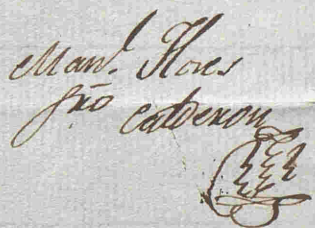 Man.l Flores
Calderon